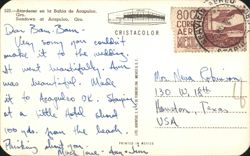 523.- Atardecer en la Bahia de Acapulco,
Gro.
Sundown at Acapulco, Gro.
CRISTACOLOR
Dear Bam-Bam-
Very sorry you couldn't
make it to the wedding.
It went beautifully, Ann
was beautiful. Made
it to Acapulco OK. Staying
at a little Hotel about
100 yds. from the beach.
Thinking about you
Much love - Jim
PRINTED IN MEXICO
80
CORREO AEREO
MEXICO
Mrs. Neva Robinson
130 W. 18th
Houston, Texas
USA